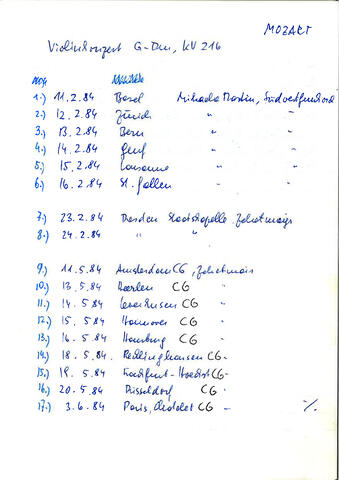 MOZART
Violinkonzert G-Dur, KV 216
1.) 11.2.84 Basel
2.) 12.2.84 Zürich " "
3.) 13.2.84 Bern " "
4.) 14.2.84 Genf " "
5.) 15.2.84 Lausanne " "
6.) 16.2.84 St. Gallen " "
7.) 23.2.84 Dresden Staatskapelle
8.) 24.2.84 " "
9.) 11.5.84 Amsterdam CG,
10.) 13.5.84 Haarlem CG "
11.) 14.5.84 Leverkusen CG "
12.) 15.5.84 Hannover CG "
13.) 16.5.84 Hamburg CG "
14.) 18.5.84. Recklinghausen CG -
15.) 19.5.84 Frankfurt-Hoechst CG -
16.) 20.5.84 Düsseldorf CG -
17.) 3.6.84 Paris, Chatelet CG - ./.